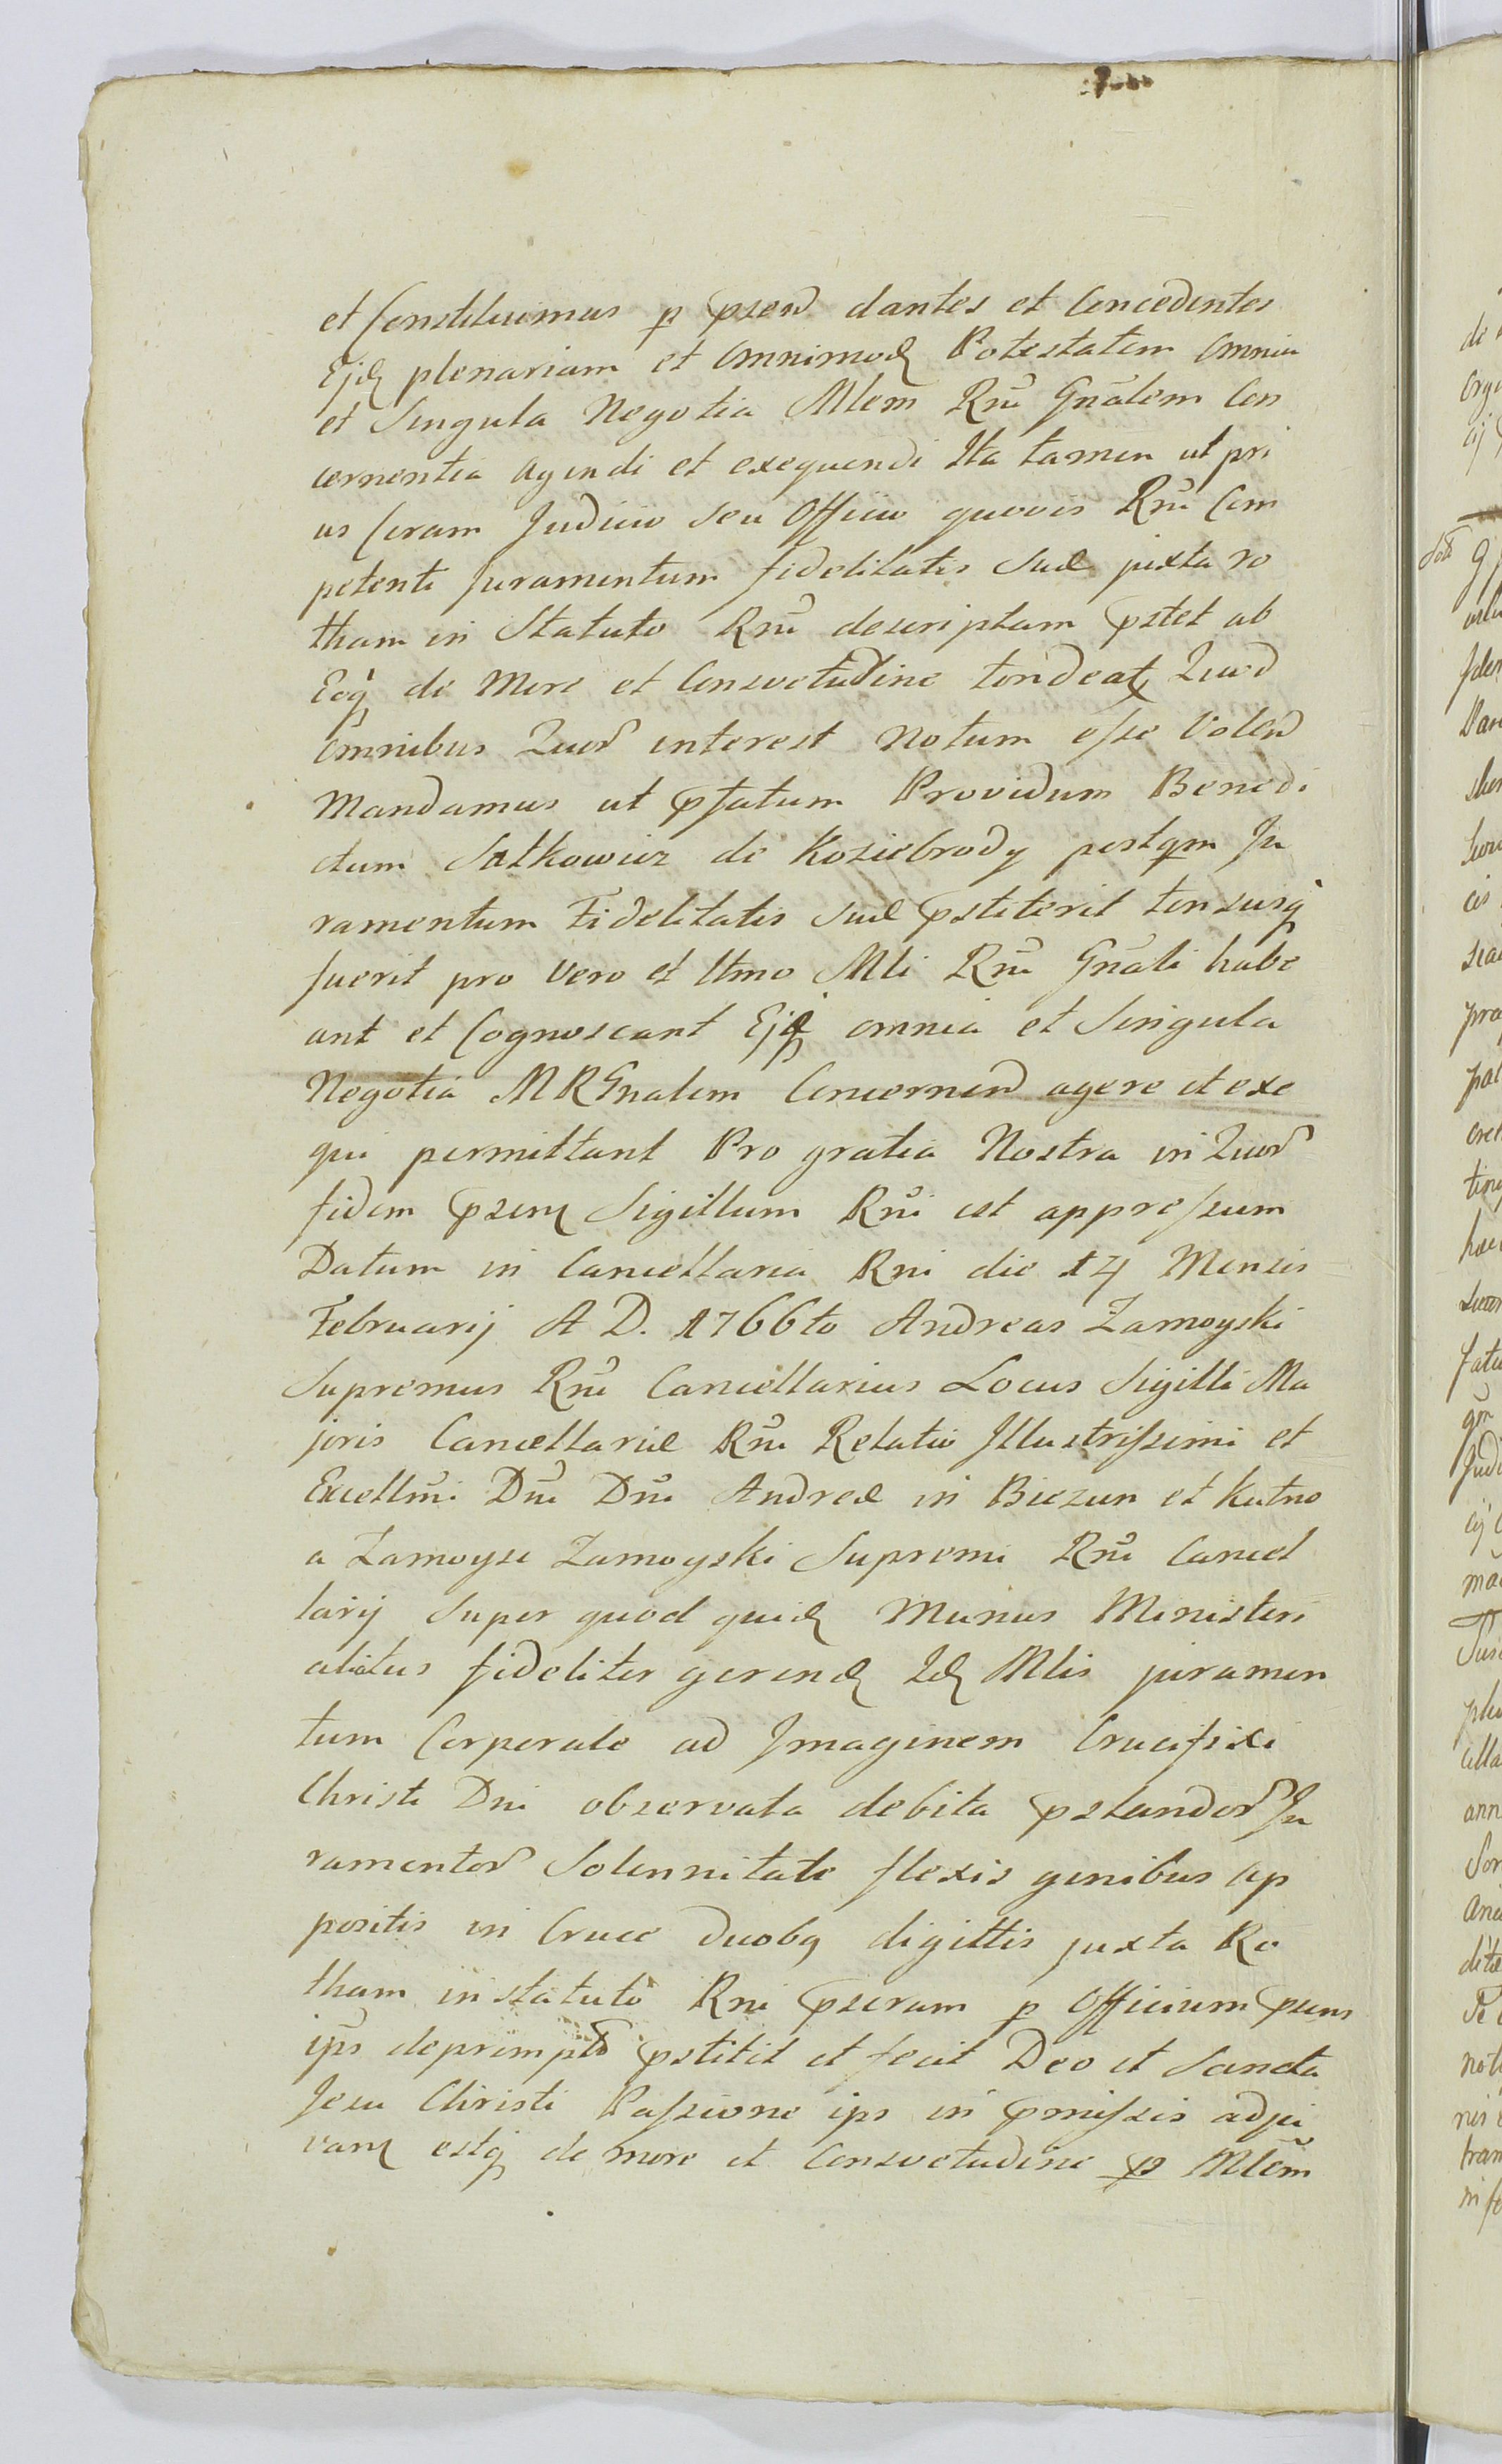 et Constituimus p psen dantes et Concedentes
Ejd plenariam et Omnimod Potestatem Omnia
et Singula Negotia Mlem Rni Gnalem Con
cernentia Agendi et exequendi Ita tamen ut pri
us Coram Judicio seu Officio quovis Rni Com
petenti Juramentum fidelitatis Suæ juxta ro
tham in Statuto Rni descriptam pstet ab
Eoq de More et Consvetudine tondeat Quod
Omnibus Quor interest Notum esse Volen
Mandamus ut pfatum Providum Benedi
ctum Satkowicz de Koziebrody postqm Ju
ramentum Fidelitatis suæ pstiterit tonsusq
fuerit pro Vero et ltmo Mli Rni Gnali habe
ant et Cognoscant Ejq omnia et Singula
Negotia M R Gnalem Concernen agere et exe
qui permittant Pro gratia Nostra in Quor
fidem psen Sigillum Rni est appressum
Datum in Cancellaria Rni die 14 Mensis
Februarij A D. 1766to Andreas Zamoyski
Supremus Rni Cancellarius Locus Sigilli Ma
joris Cancellariæ Rni Relatio Illustrissimi et
Excellmi Dni Dni Andreæ in Biezun et Kutno
a Zamoysc Zamoyski Supremi Rni Cancel
larij Super quod quid Munus Ministeri
aliatus fideliter gerend Id Mlis juramen
tum Corporale ad Imaginem Crucifixi
Christi Dni observata debita pstandor Ju
ramentor Solennitate flexis genibus ap
positis in Cruce duobq digittis juxta Ro
tham in statuto Rni pscram p Officium psens
ips deprompt pstitit et fecit Deo et Sancta
Jesu Christi Passione ips in pmissis adju
van estq de more et Consvetudine p Mlem